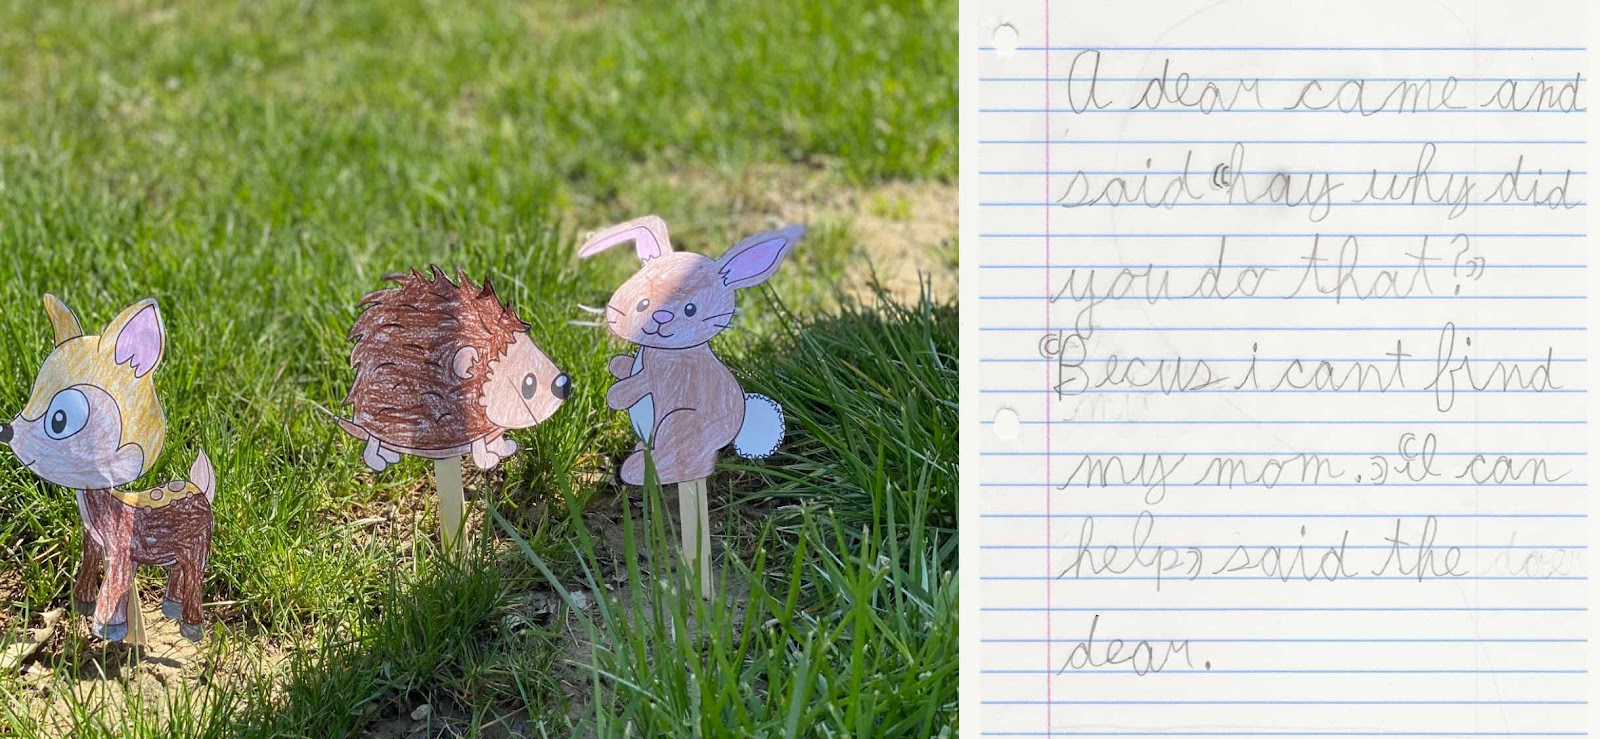 A dear came and
said “hay why did
you do that?”
“Becus i cant find
my mom.” “I can
help” said the
dear.